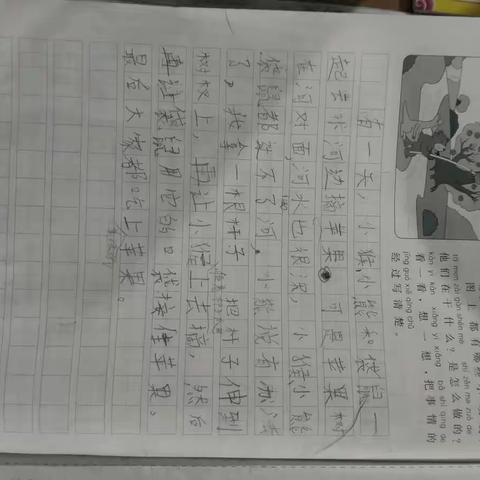 图上都有哪些
他们在干什么？是怎么做的？
看一看，想一想，把事情的
经过写清楚。
有一天，小猴小熊和袋鼠一
起去小河边摘苹果。可是苹果树
在河对面，河水也很深，小猴小熊
袋鼠都过不了河。小熊说有办法
了，我拿一根杆子，把杆子伸到
树杈上，再让小猴上去摘，然后
再让袋鼠用它的口袋接住苹果。
最后大家都吃上苹果。